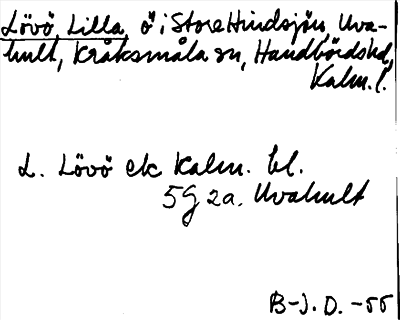 Lövö, Lilla, ö i Store Hindsjön, Uva-
hult, Kråksmåla sn, Handbörds hd,
Kalm. l.
L. Lövö ek Kalm. bl.
5 G 2a. Uvahult
B-J. D. -55